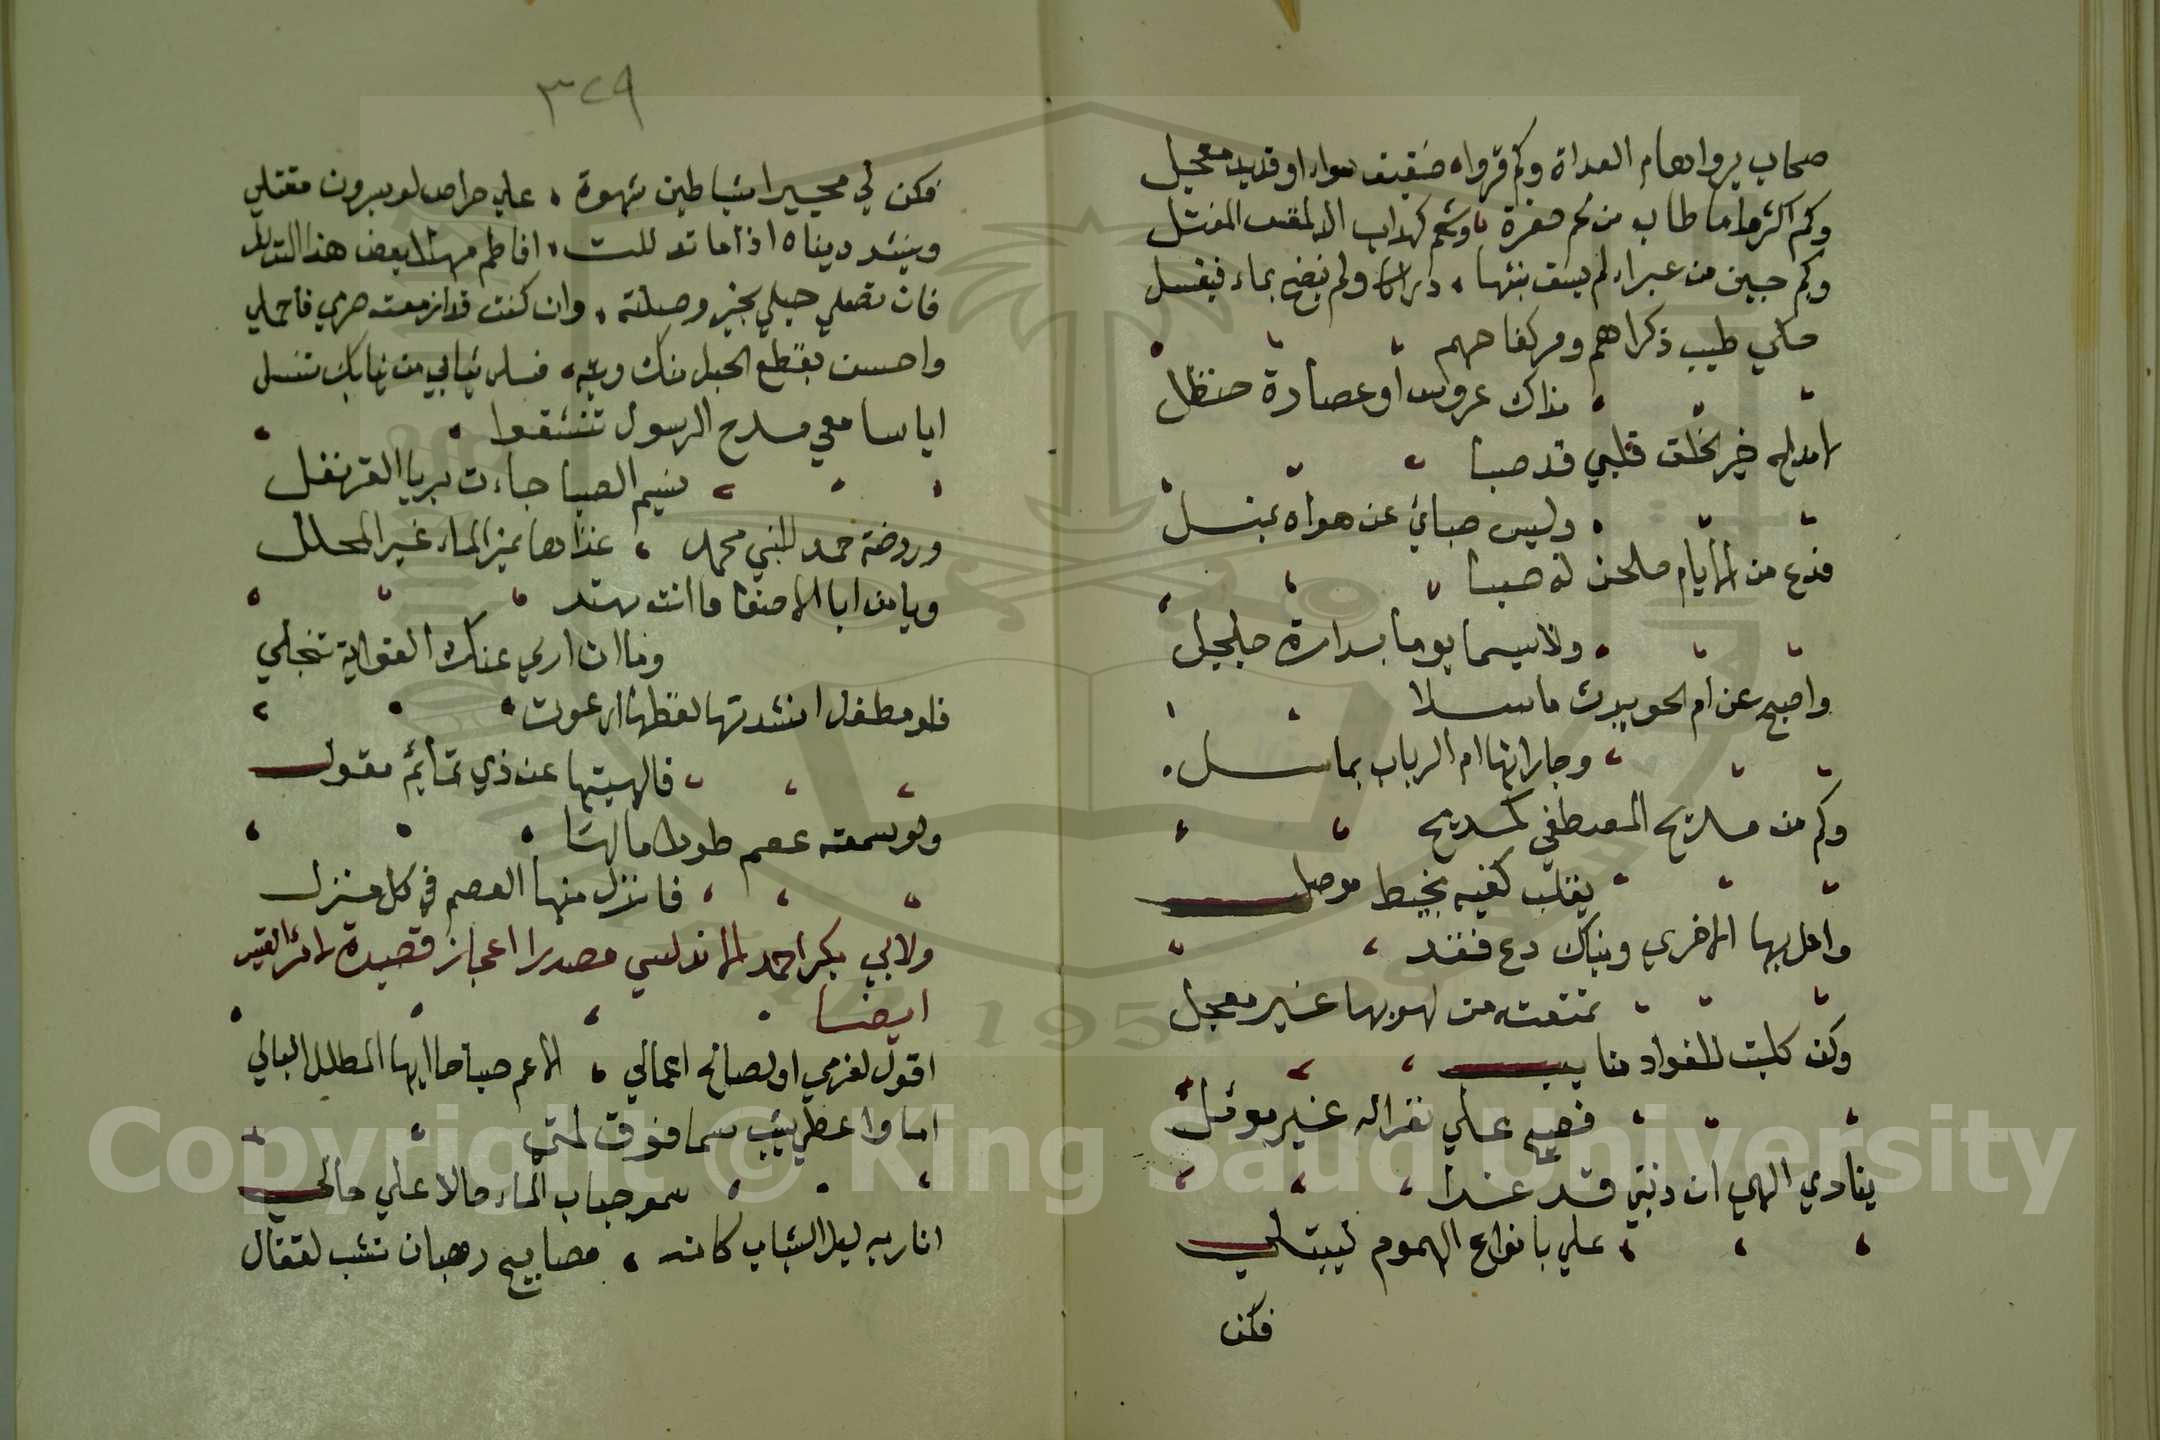 صحاب بروا هام العداة وكم قروا ، صفيف سواء او قديد معجل
وكم اكثروا ما طاب من لحم جفرة ، وشحم كهداب الدمقس المفتل
وكم جبين من عبراء لم يسق بنتها ، دراكا ولم ينضح بماء فيغسل
حكي طيب ذكراهم ومر كفاحهم
مداك عروس او عصارة حنظل
لامداح خير الخلق قلبي قد صبا
وليس صبائي عن هواه بمنسل
فدع من لايام صلحن له صبا
ولا سيما يوما بدارة جلجل
واصبح عن ام الحويرث ما سلا
وجاراتها ام الرباب بماسل
وكم من مديح المصطفي كمديح
يقلب كفيه بخيط موصل
واهل بها الاخري وبناك دع فقد
تمتعت من لهو بها غير معجل
وكن كلبت للفواد منا
فصيح علي تعذاله غير موتل
ينادي الهي ان ذنبي قد غدا
علي بانواع الهموم ليبتلي
فكن
٣٢٩
فكن لي مجيرا من شياطين شهوة ، علي حراص لو يسرون مقتلي
وينشد دنياه اذا ما تدللت ، افاطم مهلا بعض هذا التدلل
فان تصلي حبلي بخير وصلته ، وان كنت قد ازمعت صرمي فاجملي
واحسن بقطع الحبل منك وبته ، فسلي ثيابي من ثيابك تنسل
ايا سامعي مدح الرسول تنشقوا
نسيم الصبا جاءت بريا القرنفل
وروضة حمد للنبي محمد ، غذاها نمير الماء غير المحلل
ويا من ابا الاصغا ما انت مهتد
وما ان اري عنك الغواية تنجلي
فلو مطفل انشدتها لفظها ارعوت
فالهيتها عن ذي تمائم مغول
ولو سمعته عصم طود امالها
فانزل منها العصم في كل منزل
ولابي بكر احمد الاندلسي مصدرا اعجاز قصيدة لامرء القيس
ايضا
اقول لعزمي او لصالح اعمالي ، الا عم صباحا ايها الطلل البالي
اما واعظي شيب سما فوق لمتي
سمو حباب الماء حالا علي حالي
انار به ليل الشباب كانه ، مصابيح رهبان تشب لقفال